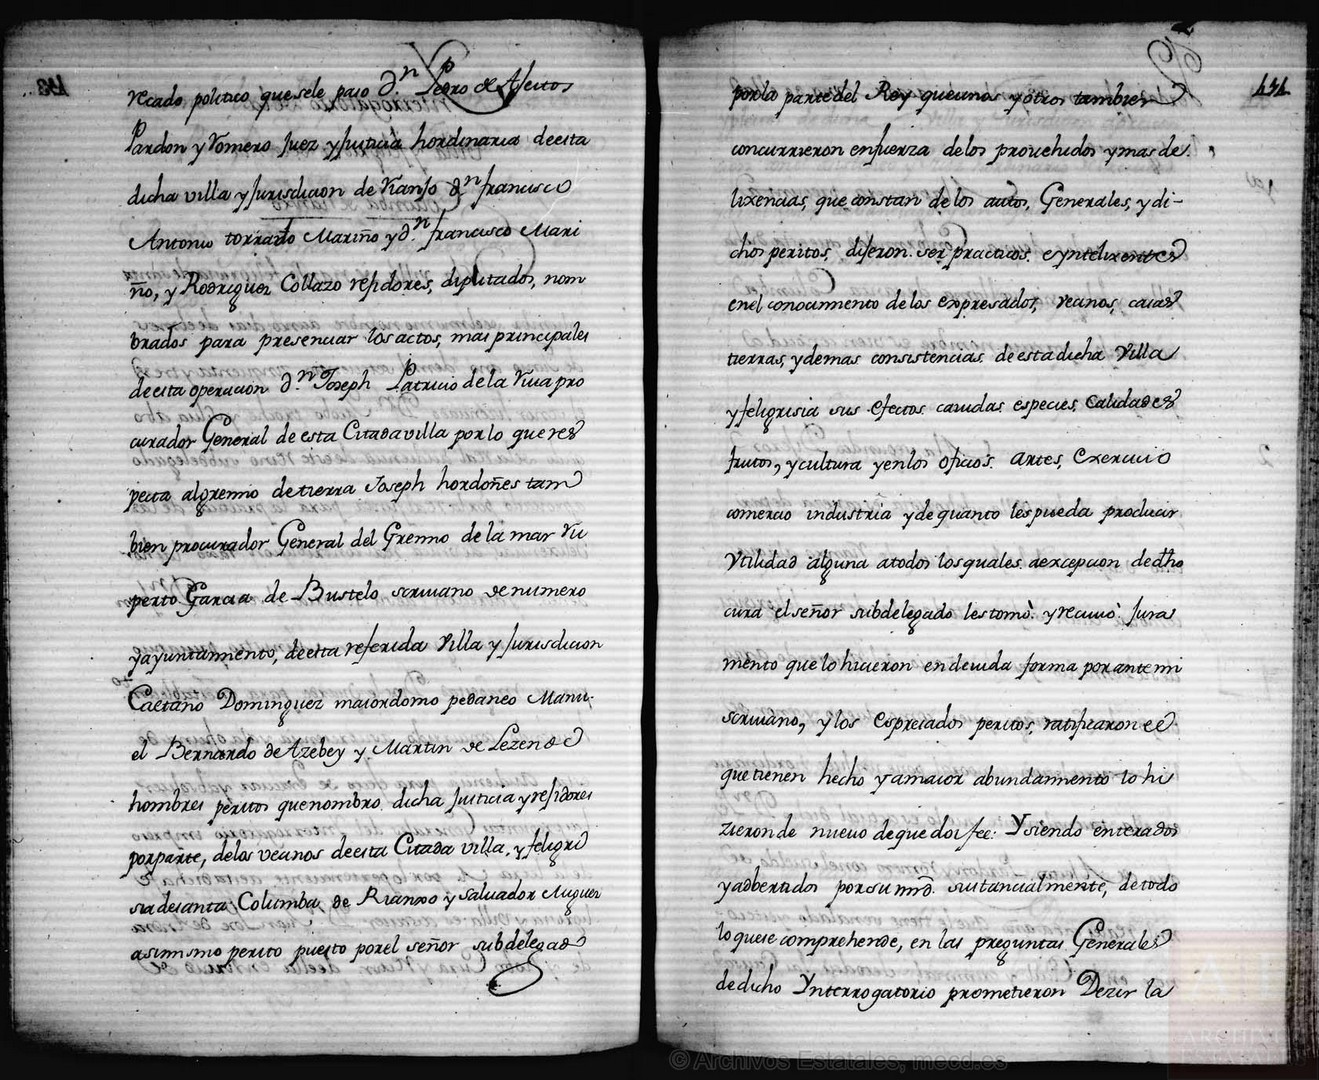 recado politico que sele paso D.n Pedro de Asentos
Pardon y Romero Juez y Justicia hordinaria deesta
dicha villa y Jurisdicion de Rianjo D.n francisco
Antonio torrado Mariño y d.n francisco Mari
ño, y Rodriguez Collazo rejidores, diputados, nom
brados para presenciar los actos, mas principales
deesta operacion D.n Joseph Patricio de la Viua pro
curador General de esta Citada villa por lo que res
pecta algremio de tierra Joseph hordoñes tam
bien procurador General del Gremio de la mar Ru
perto Garcia de Bustelo scriuano de numero
y ayuntamiento, deesta referida Villa y Jurisdicion
Caetano Dominguez maiordomo pedaneo Manu
el Bernardo de Azebey y Martin de Lezende
hombres peritos que nombro dicha Justicia y rejidores
por parte, delos vecinos deesta Citada villa, y feligre
sia desanta Columba de Rianxo y Saluador Miguez
asimismo perito puesto por el señor subdelegado
454
por la parte del Rey que unos y otros tambien
concurrieron enfuerza de los prouehidos y mas de
lixencias, que constan de los autos, Generales, y di-
chos peritos, dijeron ser practicos, e yntelixentes
en el conocimiento de los expresados, vecinos, casas
tierras, y demas consistencias de esta dicha Villa
y feligrisia sus efectos cauidas especies, calidades
frutos, y cultura y en los oficios artes, Exercicio
comercio industria y de quanto les pueda producir
Vtilidad alguna a todos los quales aexcepcion de dho
cura el señor subdelegado les tomò y reciuiò Jura
mento que lo hicieron en deuida forma por ante mi
scriuano, y los espreciados peritos, ratificaron ee
que tienen hecho y a maior abundamiento lo hi
zieron de nueuo de que doi fee: Y siendo enterados
y adbertidos por su mrd. sustancialmente, de todo
lo que se comprehende, en las preguntas Generales
de dicho Ynterrogatorio prometieron Dezir la
© Archivos Estatales, mecd.es